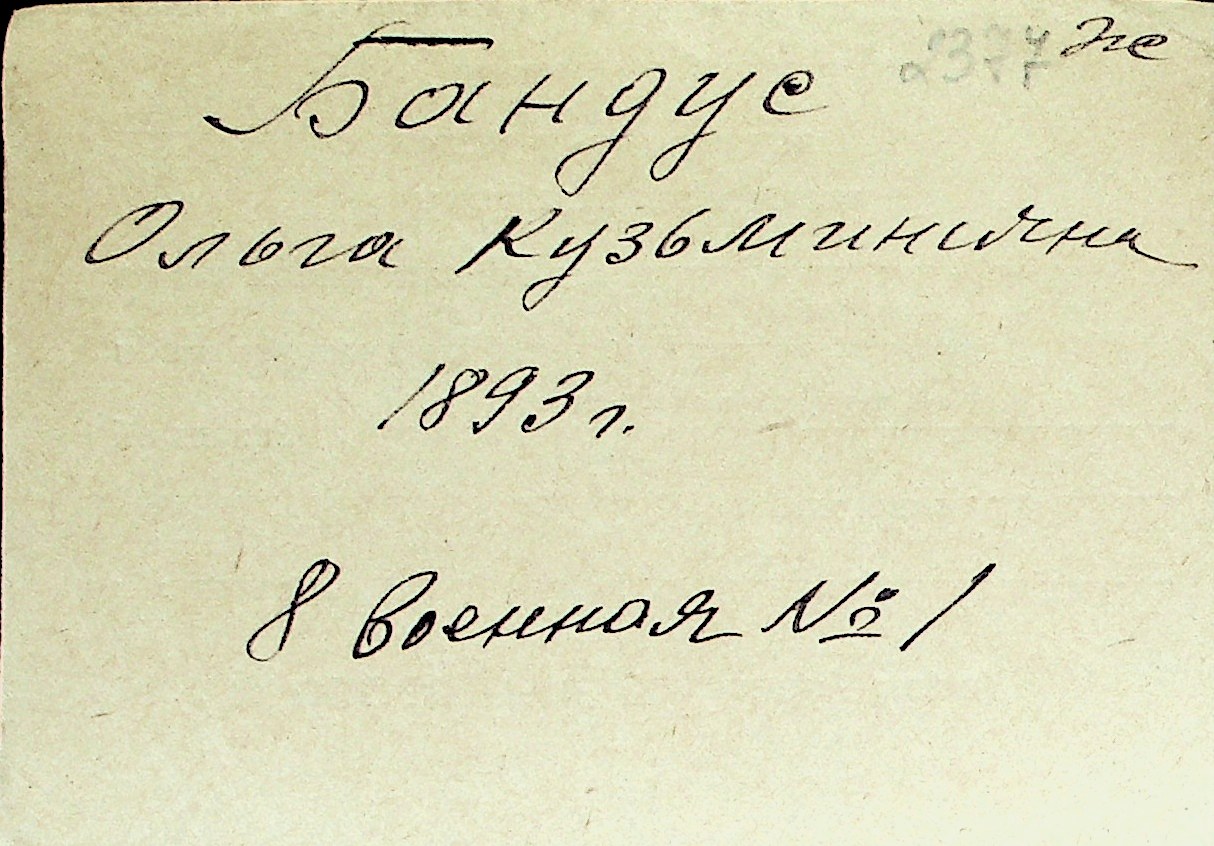 Бандус
Ольга Кузьминична
1893 г.
8 военная № 1